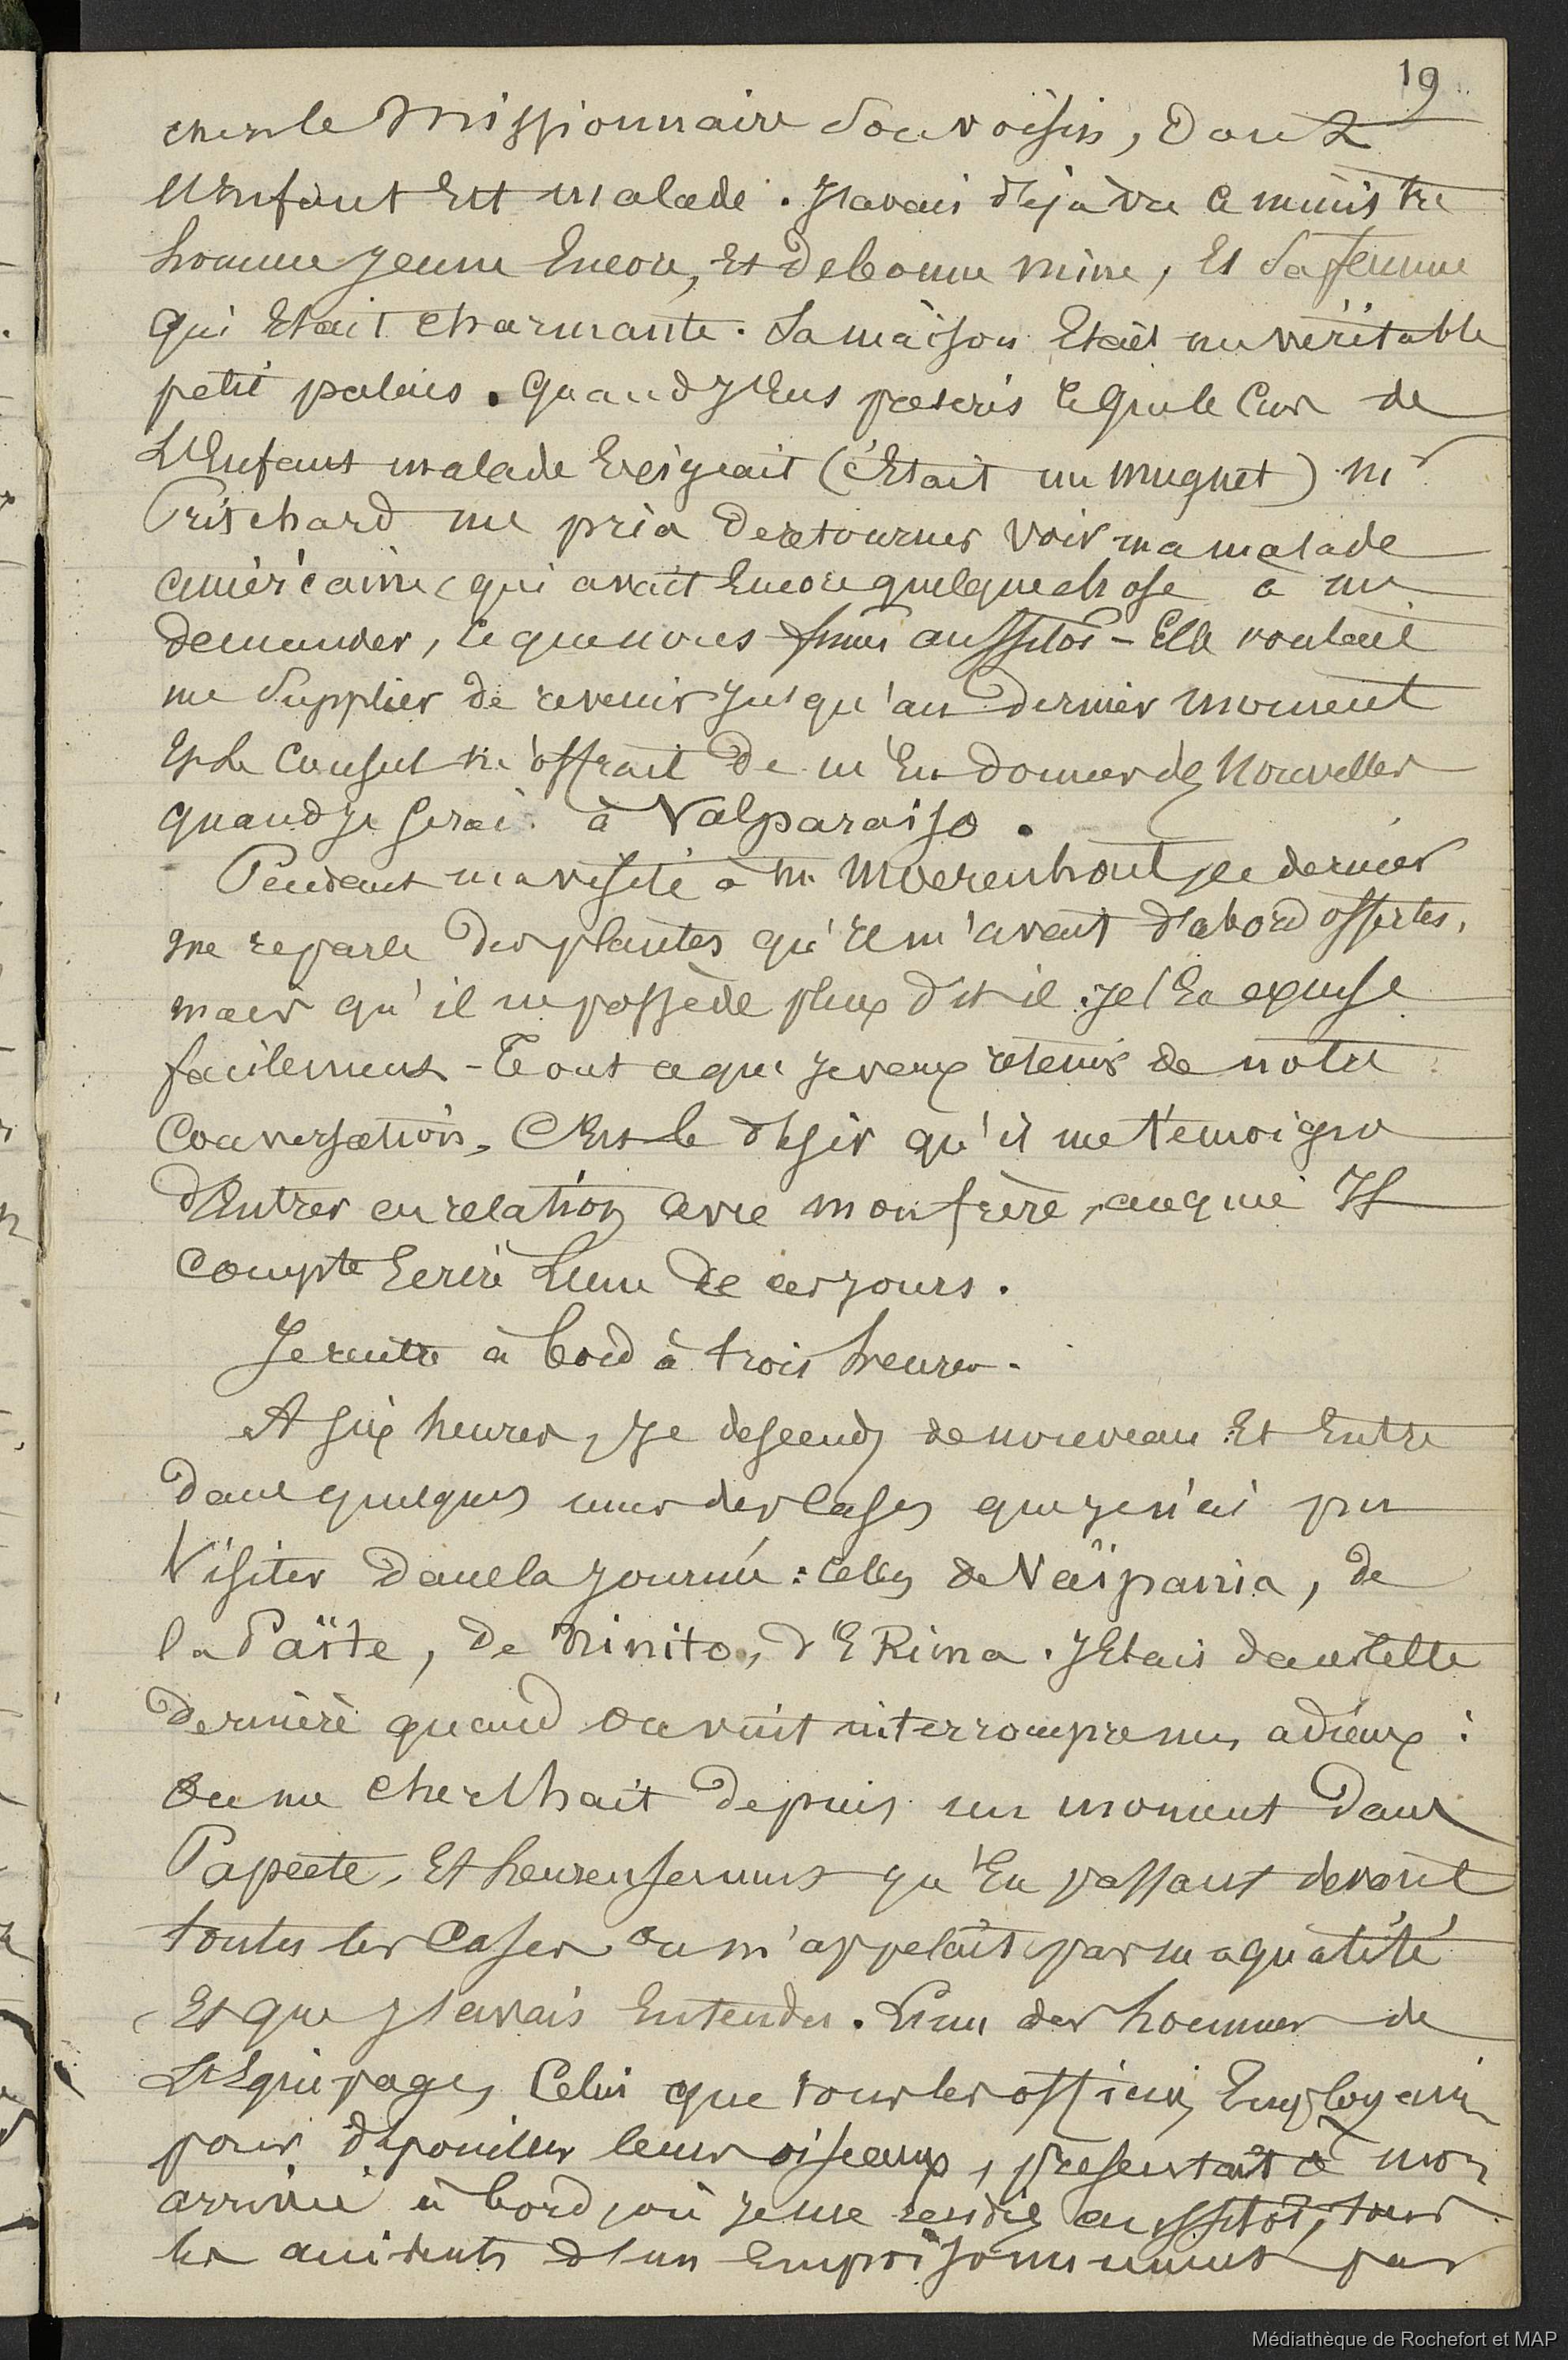 19
chez le Missionnaire Son voisin, Dont
l'Enfant Est malade. J'avais déjà vu ce ministre
homme jeune Encore, Et De bonne mine, Et Sa femme
qui Etait charmante. Sa maison Etait un véritable
petit palais. Quand J'Eus prescris ce que le Cas de
L'Enfant malade Exigeait (c'Etait un muguet) Mr
Pritchard me pria De retourner Voir ma malade
américaine qui avait Encore quelque chose à me
demander, ce que nous fîmes aussitôt - Elle voulait
me Supplier de revenir Jusqu'au Dernier moment
Et le Consul m'offrait De m'En donner des Nouvelles
quand Je Serai à Valparaiso.
Pendant ma visite à Mr Moerenhout, ce dernier
me reparle Des plantes qu'il m'avait D'abord offertes,
mais qu'il ne possède plus Dit il. Je l'En excuse
facilement - Tout ce que Je veux retenir de notre
Conversation, C'Est le désir qu'il me témoigne
D'Entrer en relation avec mon frère, auquel Il
Compte Ecrire L'un De ces jours.
Je rentre à bord à trois heures.
A Six heures, Je descends de nouveau Et Entre
Dans quelques unes des Cases que je n'ai pu
Visiter Dans la journée : celles de Vaïpania, de
la Païte, De Ninito, d'ERima. J'Etais dans cette
Dernière quand on vint interrompre mes adieux :
On me cherchait Depuis un moment Dans
Papeete, Et heureusement qu'En passant devant
toutes les Cases on m'appelait par ma qualité
Et que J'avais Entendu. L'un des hommes de
L'Equipage, Celui que tous les officiers Employaient
pour dépouiller leurs oiseaux, présentait à mon
arrivée à bord, où je me rendis aussitôt, tous
les accidents d'un Empoisonnement par
Médiathèque de Rochefort et MAP